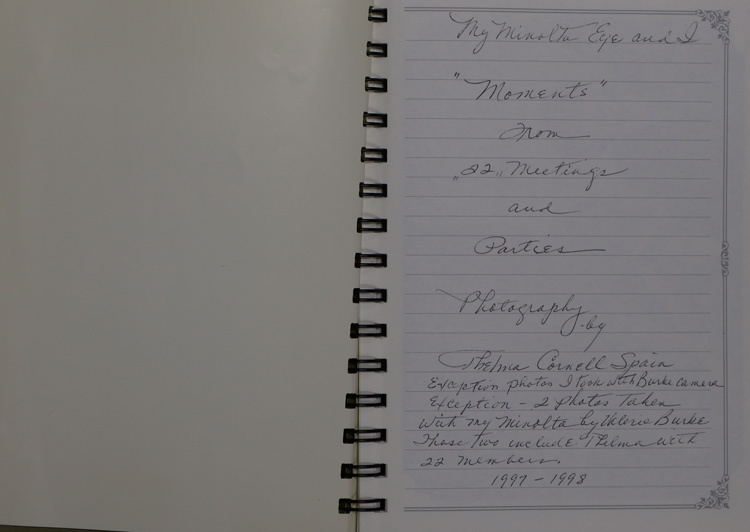 My Minolta Eye and I
"Moments"
From
"22" Meetings
and
Parties
Photography
by
Thelma Cornell Spain
Exception photos I took with Burke camera
Exception - 2 photos Taken
With my Minolta by Valerie Burke
Those two include Thelma with
22 members.
1997 - 1998